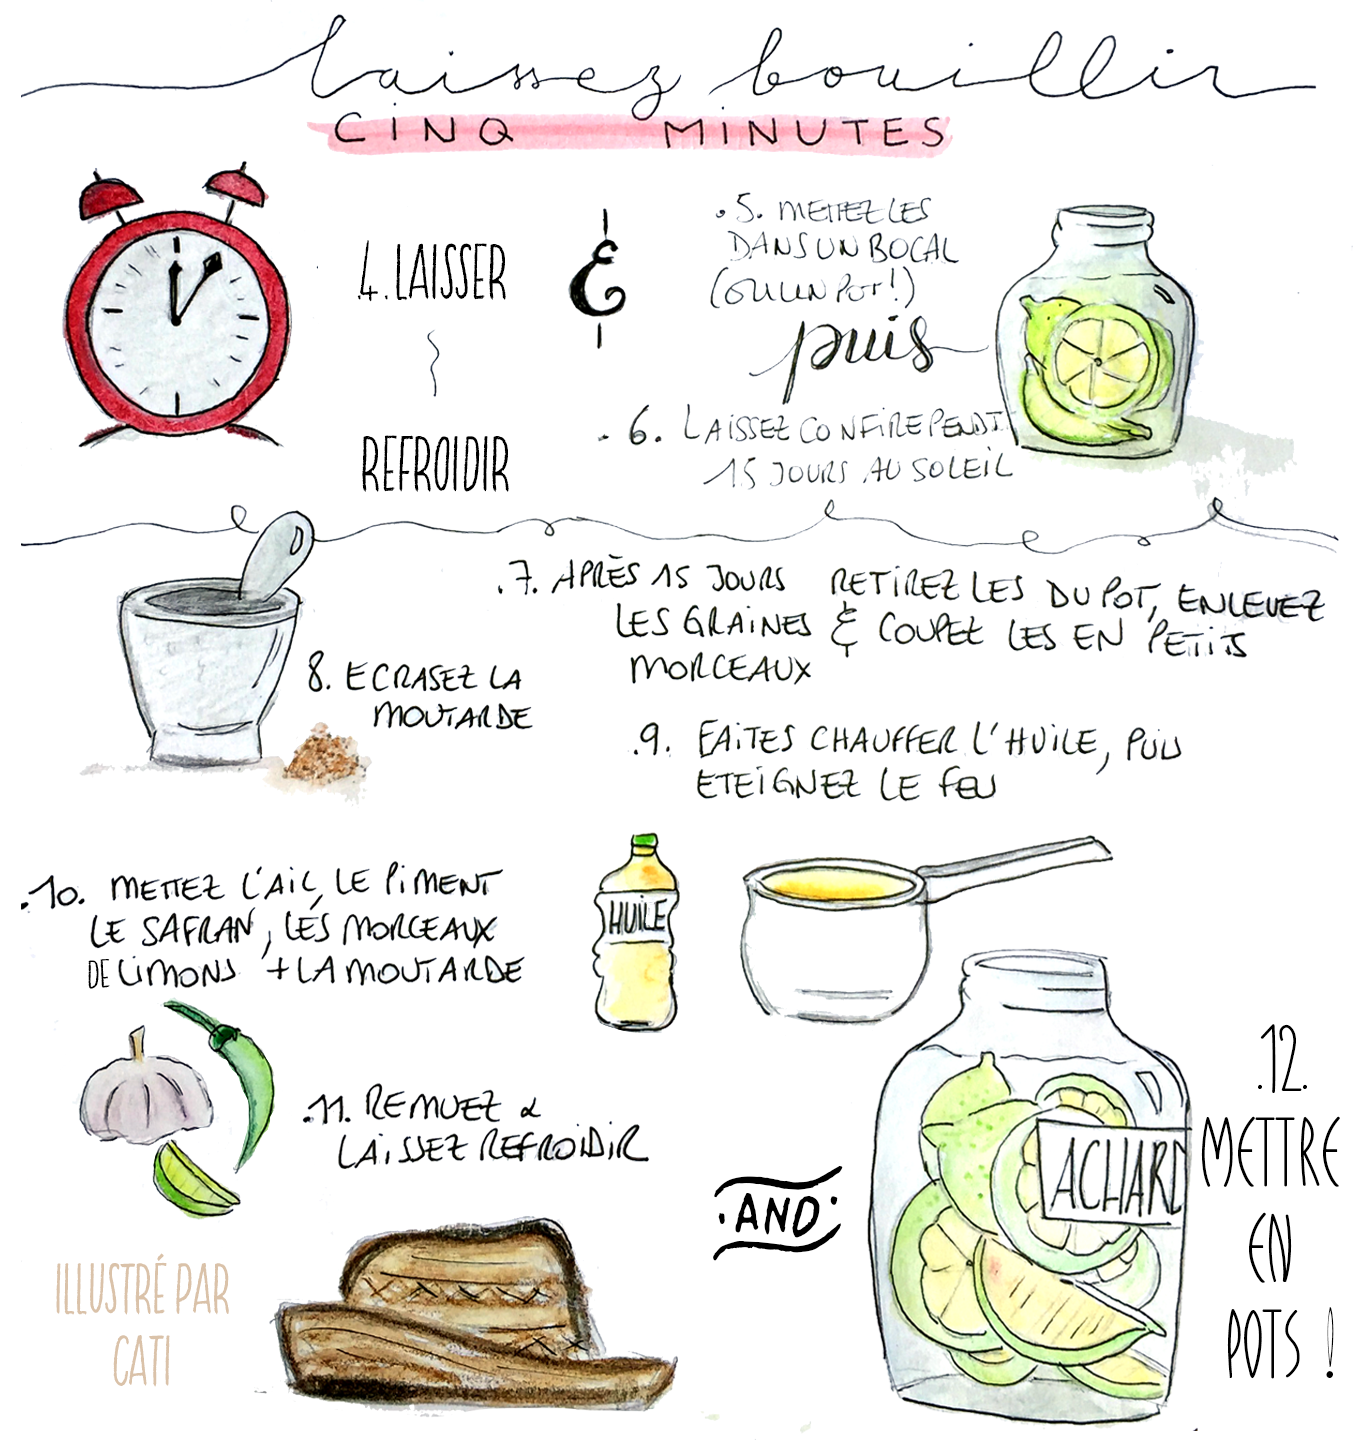 laissez bouillir
CINQ MINUTES
.4. LAISSER
REFROIDIR
&
.5. METTEZ LES
DANS UN BOCAL
(OU UN POT !)
puis
.6. LAISSEZ CONFIRE PENDT
15 JOURS AU SOLEIL
.7. APRÈS 15 JOURS RETIREZ LES DU POT, ENLEVEZ
LES GRAINES & COUPEZ LES EN PETITS
MORCEAUX
8. ECRASEZ LA
MOUTARDE
.9. FAITES CHAUFFER L'HUILE, PUIS
ETEIGNEZ LE FEU
.10. METTEZ L'AIL, LE PIMENT
LE SAFRAN, LES MORCEAUX
DE LIMONS + LA MOUTARDE
HUILE
.11. REMUEZ &
LAISSEZ REFROIDIR
AND
ACHARD
.12.
METTRE
EN
POTS !
ILLUSTRÉ PAR
CATI